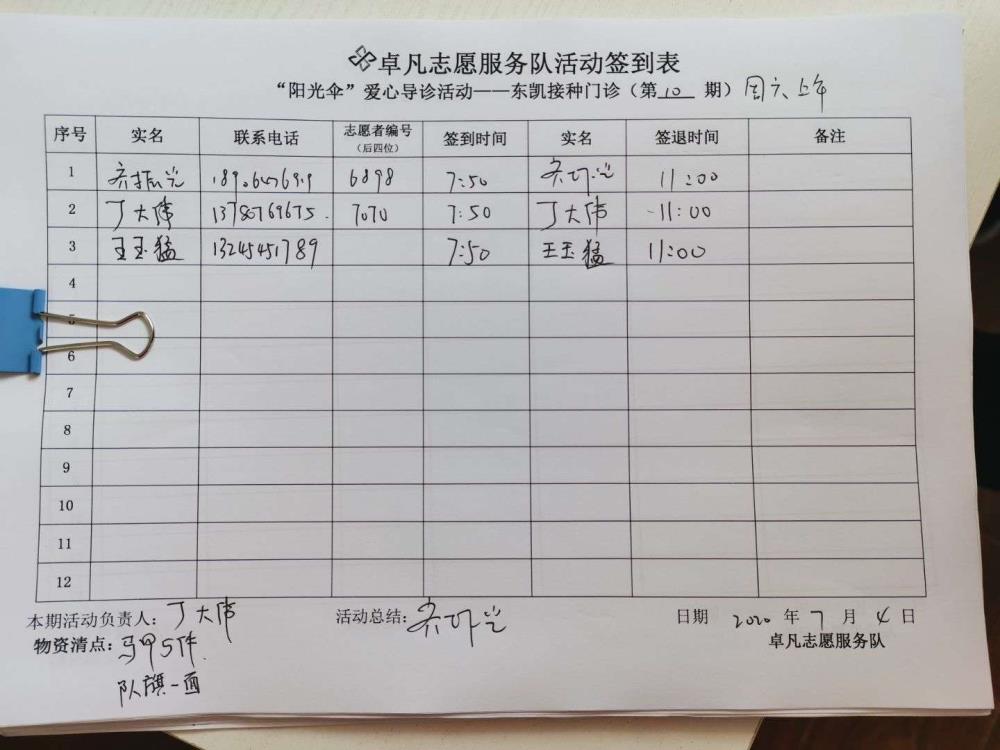 卓凡志愿服务队活动签到表
“阳光伞”爱心导诊活动——东凯接种门诊（第10期）周六、上午
序号 实名 联系电话 志愿者编号（后四位） 签到时间 实名 签退时间 备注
1 齐振兴 6898 7:50 11:00
2 丁大伟 7070 7:50 丁大伟 11:00
3 王玉猛 13245451789 7:50 王玉猛 11:00
4
5
6
7
8
9
10
11
12
本期活动负责人：丁大伟 活动总结： 日期 2020年7月4日
物资清点：马甲5件 卓凡志愿服务队
队旗一面